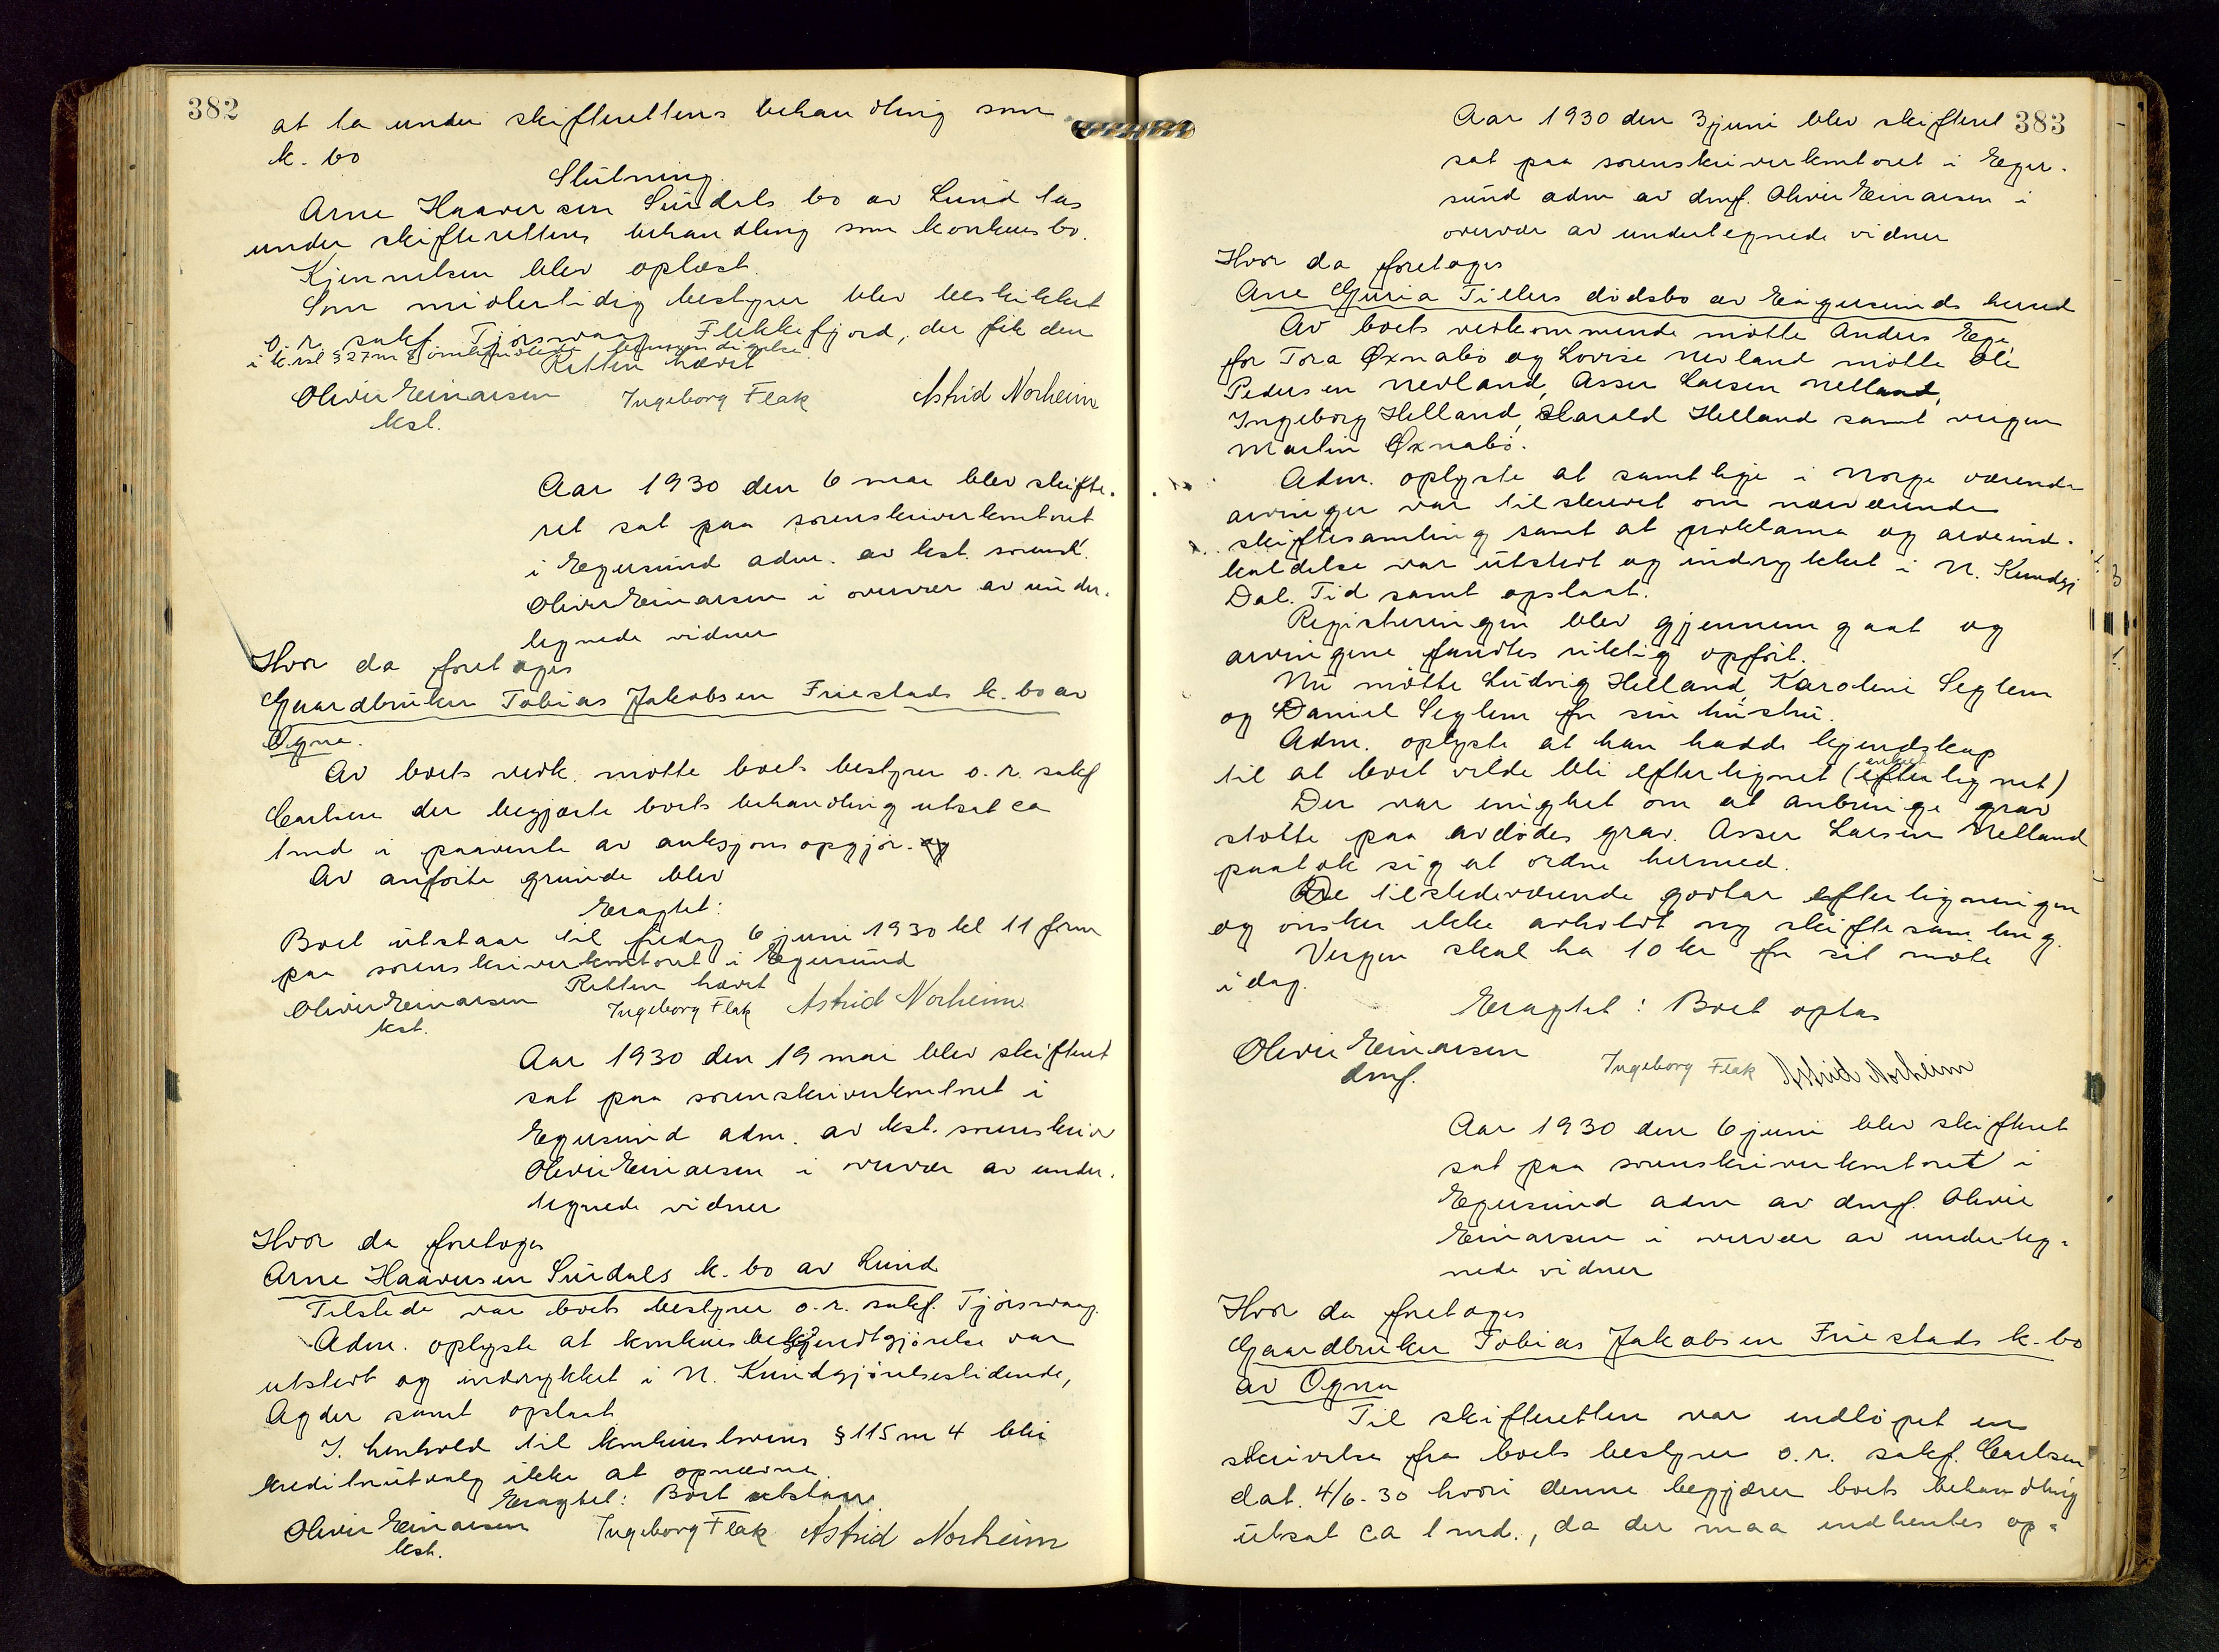 382
at ta under skifterettens behandling som
k. bo
Slutning.
Arne Haaversen Surdals bo av Lund tas
under skifterettens behandling som konkursbo.
Kjennelsen blev oplæst.
Som midlertidig bestyrer blev beskikket
o. r. sakf. Tjørsvaag Flekkefjord, der fik den
i k. rsl § 27 nr 2 omhandlede bemyndigelse.
Retten hævet
Olivir Einarsen Ingeborg Flak Astrid Norheim
kst.
Aar 1930 den 6 mai blev skifte-
ret sat paa sorenskriverkontoret
i Egersund adm. av kst. sorensk.
Olivir Einarsen i overvær av under-
tegnede vidner
Hvor da foretoges
Gaardbruker Tobias Jakobsen Friestads k. bo av
Ogna.
Av boets vedk. møtte boets bestyrer o. r. sakf
Carlsen der begjærte boets behandling utsat ca
1 md i paavente av auksjonsopgjør. og
Av anførte grunde blev
Eragtet:
Boet utstaar til fredag 6 juni 1930 kl 11 form
paa sorenskriverkontoret i Egersund
Retten hævet
Olivir Einarsen Ingeborg Flak Astrid Norheim
kst.
Aar 1930 den 19 mai blev skifteret
sat paa sorenskriverkontoret i
Egersund adm. av kst. sorenskriv
Olivir Einarsen i overvær av under-
tegnede vidner
Hvor da foretoges
Arne Haaversen Surdals k. bo av Lund
Tilstede var boets bestyrer o. r. sakf. Tjørsvaag.
Adm. oplyste at konkursbekjendtgjørelse var
utstedt og indrykket i N. Kundgjørelsestidende,
Agder samt opslaat
I henhold til konkurslovens § 115 nr 4 blir
kreditorutvalg ikke at opnævne.
Eragtet: Boet utstaar
Olivir Einarsen Ingeborg Flak Astrid Norheim
kst.
383
Aar 1930 den 3 juni blev skifteret
sat paa sorenskriverkontoret i Eger-
sund adm av dmf. Olivir Einarsen i
overvær av undertegnede vidner
Hvor da foretoges
Ane Guria Tillers dødsbo av Eigersunds herred
Av boets vedkommende møtte Anders Ege,
for Tora Øxnabø og Lovise Nevland møtte Ole
Pedersen Nevland, Asser Larsen Helland,
Ingeborg Helland, Harald Helland samt vergen
Martin Øxnabø.
Adm. oplyste at samtlige i Norge værende
arvinger var tilskrevet om nærværende
skiftesamling samt at proklama og arveind-
kaldelse var utstedt og indrykket i N. Kundgj
Dal. Tid samt opslaat.
Registreringen blev gjennemgaat og
arvingene fandtes riktig opført.
Nu møtte Ludvig Helland, Karoline Seglem
og Daniel Seglem for sin hustru.
Adm. oplyste at han hadde kjendskap
til at boet vilde bli efterlignet (efterlignet)
Der var enighet om at anbringe grav
støtte paa avdødes grav. Asser Larsen Helland
paatok sig at ordne hermed.
De tilstedeværende godtar efterligningen
og ønsker ikke avholdt ny skiftesamling.
Vergen skal ha 10 kr for sit møte
i dag.
Eragtet: Boet optas
Olivir Einarsen Ingeborg Flak Astrid Norheim
dmf.
Aar 1930 den 6 juni blev skifteret
sat paa sorenskriverkontoret i
Egersund adm av dmf. Olivir
Einarsen i overvær av underteg-
nede vidner
Hvor da foretoges
Gaardbruker Tobias Jakobsen Friestads k. bo
av Ogna
Til skifteretten var indløpet en
skrivelse fra boets bestyrer o. r. sakf. Carlsen
dat. 4/6-30 hvori denne begjærer boets behandling
utsat ca 1 md., da der maa indhentes op-